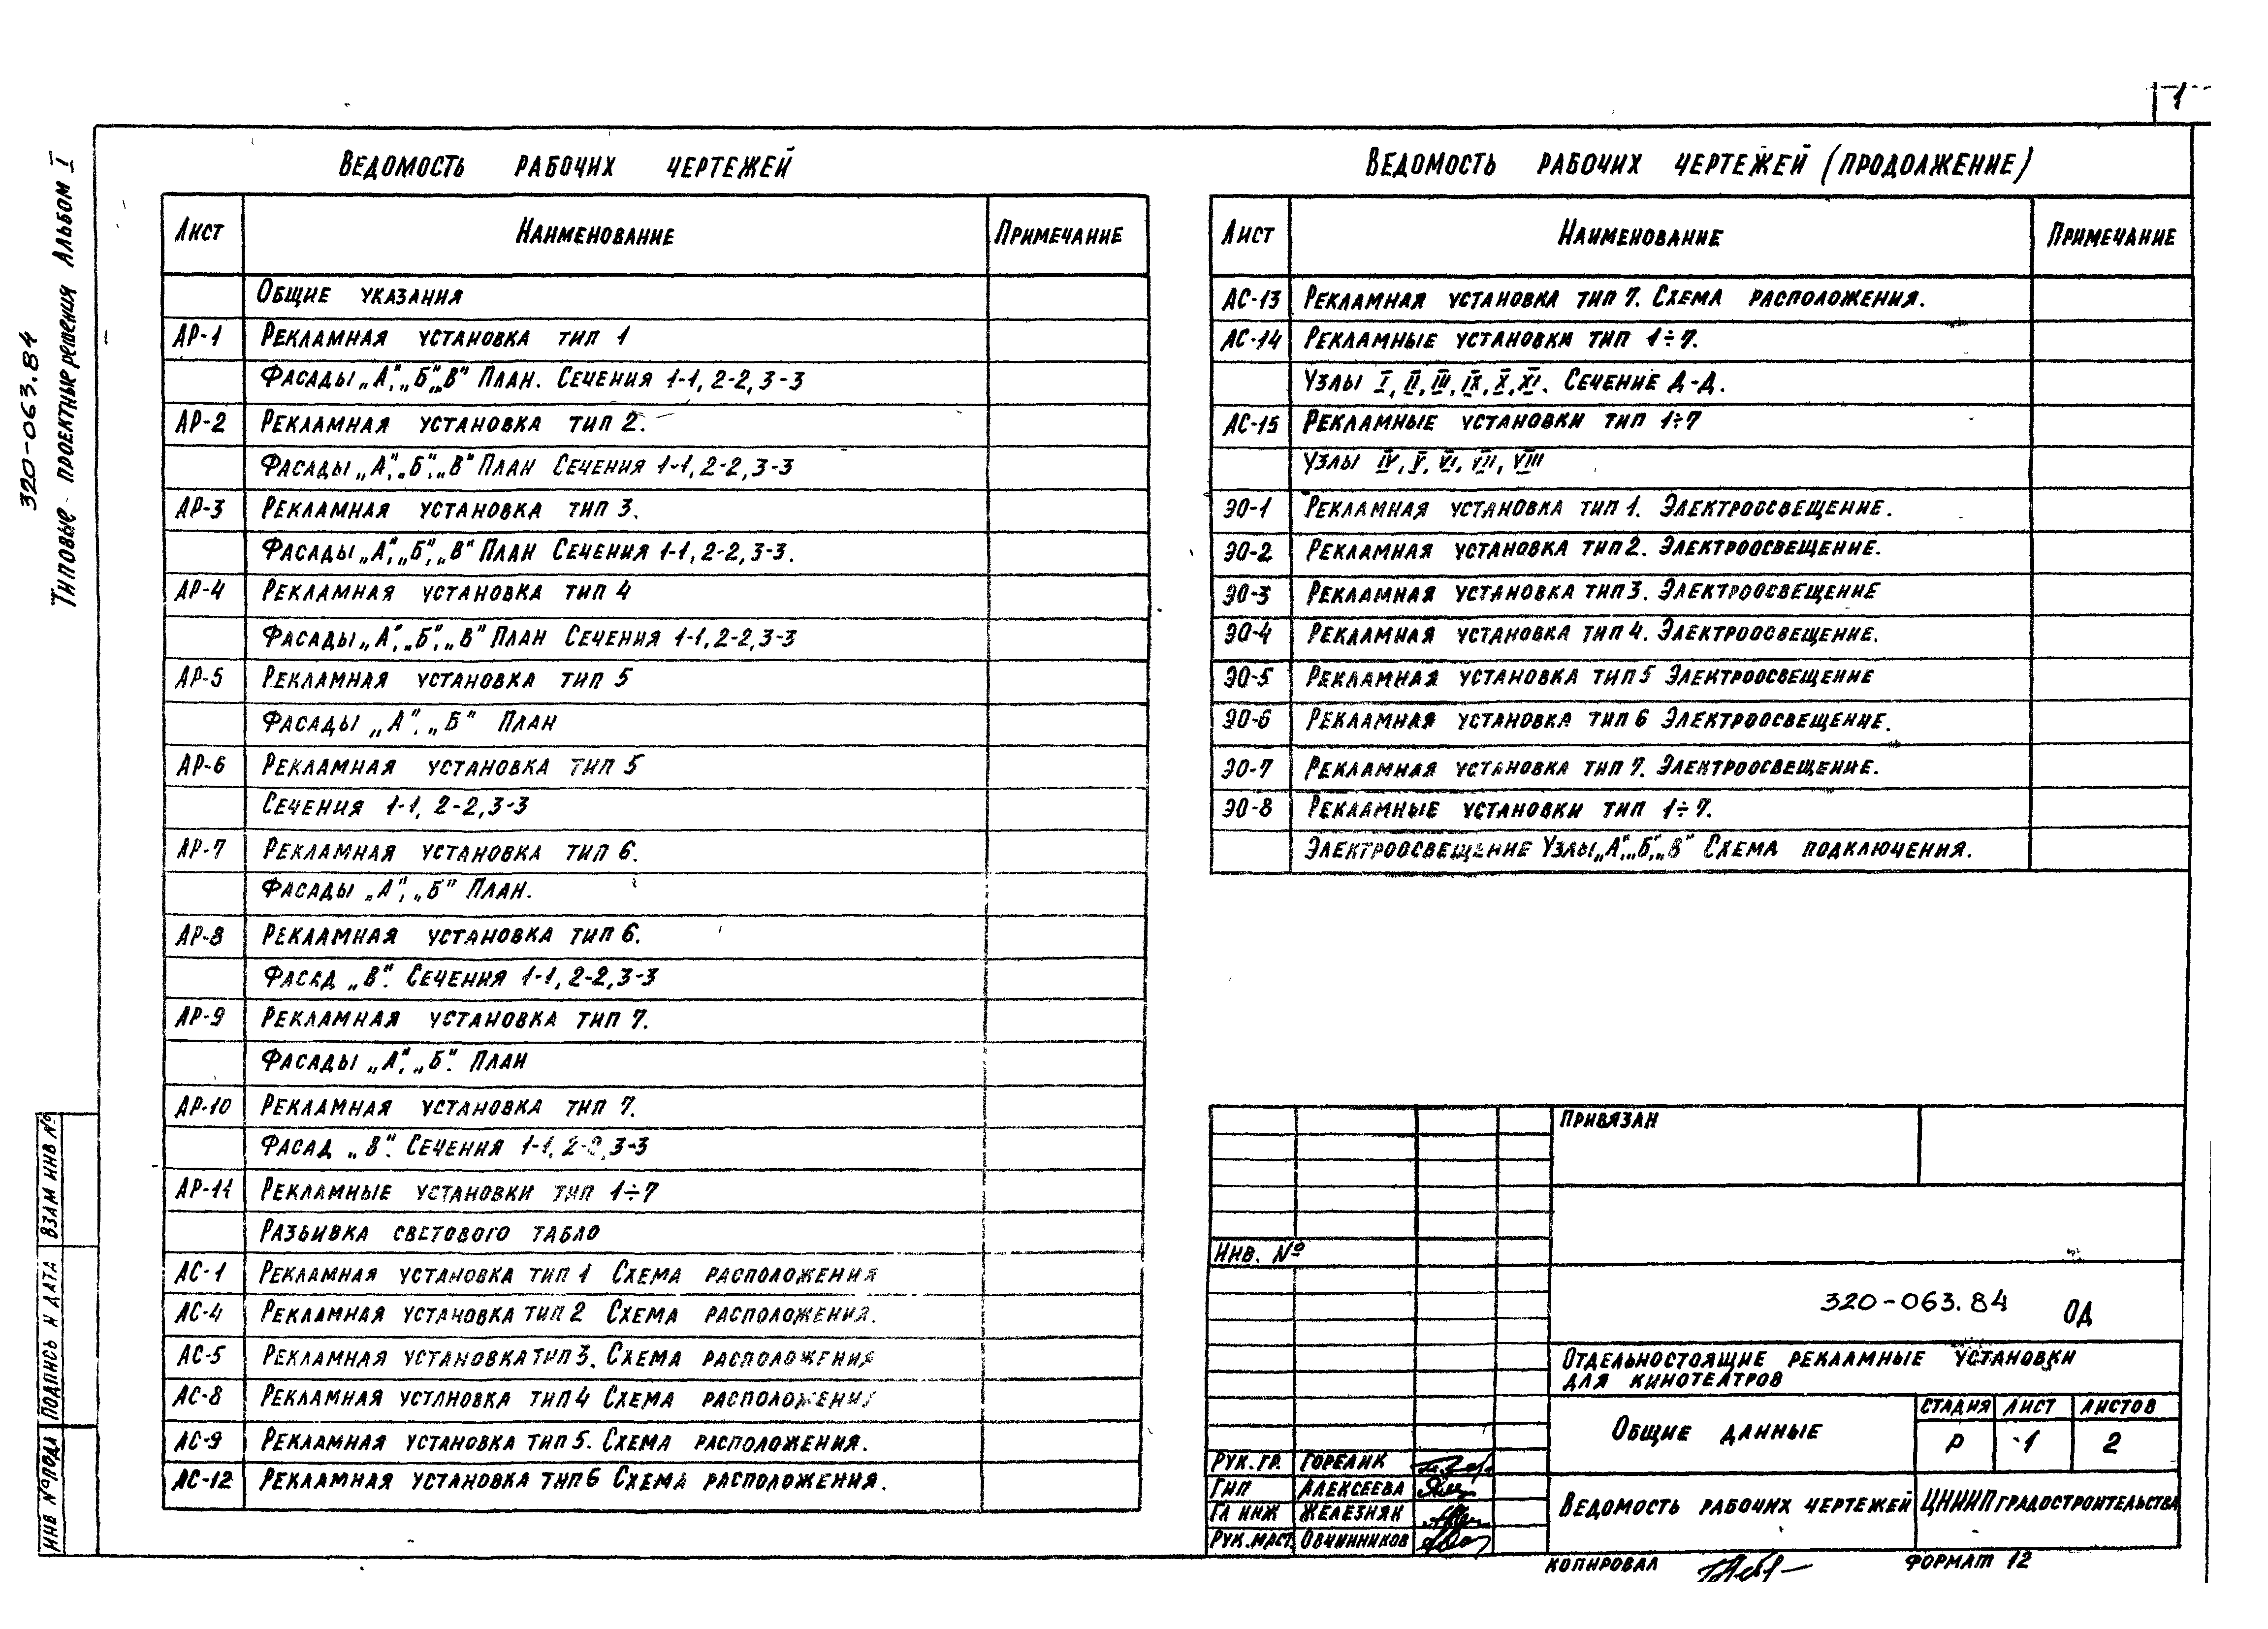 1
320-063.84
Типовые проектные решения Альбом I
Ведомость рабочих чертежей
Лист Наименование Примечание
Общие указания
АР-1 Рекламная установка тип 1
Фасады „А", „Б", „В" План. Сечения 1-1, 2-2, 3-3
АР-2 Рекламная установка тип 2.
Фасады „А", „Б", „В" План Сечения 1-1, 2-2, 3-3
АР-3 Рекламная установка тип 3.
Фасады „А", „Б", „В" План Сечения 1-1, 2-2, 3-3.
АР-4 Рекламная установка тип 4
Фасады „А", „Б", „В" План Сечения 1-1, 2-2, 3-3
АР-5 Рекламная установка тип 5
Фасады „А", „Б" План
АР-6 Рекламная установка тип 5
Сечения 1-1, 2-2, 3-3
АР-7 Рекламная установка тип 6.
Фасады „А", „Б" План.
АР-8 Рекламная установка тип 6.
Фасад „В". Сечения 1-1, 2-2, 3-3
АР-9 Рекламная установка тип 7.
Фасады „А", „Б". План
АР-10 Рекламная установка тип 7.
Фасад „В". Сечения 1-1, 2-2, 3-3
АР-11 Рекламные установки тип 1÷7
Разбивка светового табло
АС-1 Рекламная установка тип 1 Схема расположения
АС-4 Рекламная установка тип 2 Схема расположения.
АС-5 Рекламная установка тип 3. Схема расположения
АС-8 Рекламная установка тип 4 Схема расположения
АС-9 Рекламная установка тип 5. Схема расположения.
АС-12 Рекламная установка тип 6 Схема расположения.
Ведомость рабочих чертежей (продолжение)
Лист Наименование Примечание
АС-13 Рекламная установка тип 7. Схема расположения.
АС-14 Рекламные установки тип 1÷7.
Узлы I, II, III, IX, X, XI. Сечение Д-Д.
АС-15 Рекламные установки тип 1÷7
Узлы IV, V, VI, VII, VIII
ЭО-1 Рекламная установка тип 1. Электроосвещение.
ЭО-2 Рекламная установка тип 2. Электроосвещение.
ЭО-3 Рекламная установка тип 3. Электроосвещение
ЭО-4 Рекламная установка тип 4. Электроосвещение.
ЭО-5 Рекламная установка тип 5 Электроосвещение
ЭО-6 Рекламная установка тип 6 Электроосвещение.
ЭО-7 Рекламная установка тип 7. Электроосвещение.
ЭО-8 Рекламные установки тип 1÷7.
Электроосвещение Узлы „А", „Б", „В" Схема подключения.
Привязан
Инв. №
320-063.84 ОД
Отдельностоящие рекламные установки
для кинотеатров
Общие данные
Стадия Лист Листов
Р 1 2
Рук. гр. Горелик
ГИП Алексеева
Гл инж Железняк
Рук. маст. Овчинников
Ведомость рабочих чертежей
ЦНИИП градостроительства
Копировал
Формат 12
Взам инв №
Подпись и дата
Инв № подл